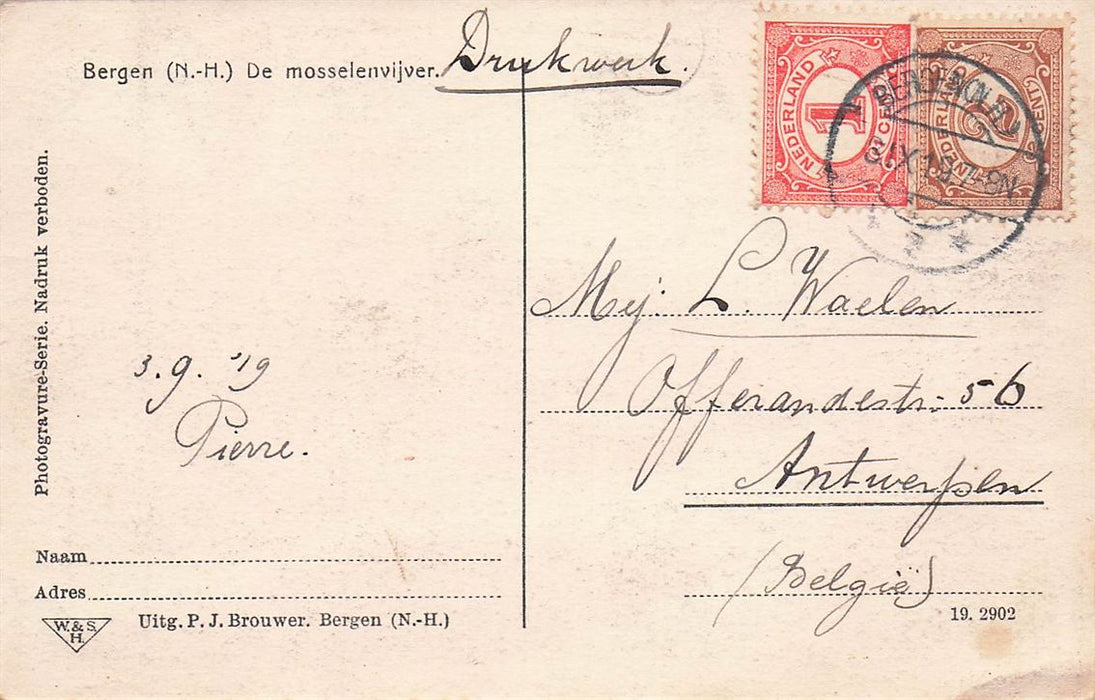 Bergen (N.-H.) De mosselenvijver.
Drukwerk.
NEDERLAND 1 CENT
NEDERLAND
BERGEN (N.H.)
Photogravure-Serie. Nadruk verboden.
3.9.'19
Pierre.
Mej. L. Waelen
Offerandestr. 56
Antwerpen
(België)
Naam
Adres
W. & S.
H.
Uitg. P. J. Brouwer. Bergen (N.-H.)
19. 2902